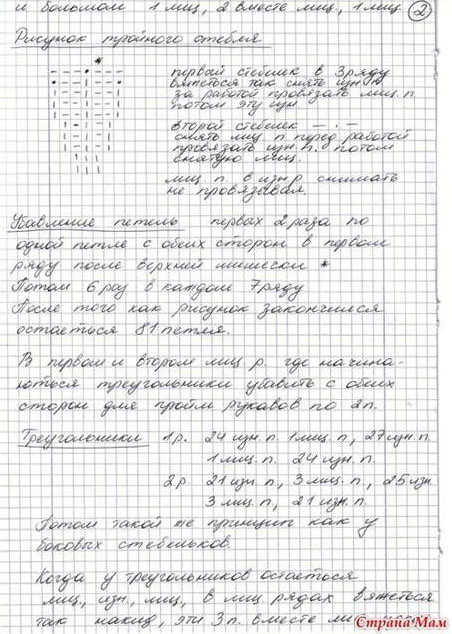 и боломал 1 лиц, 2 вместе лиц, 1 лиц
2
Рисунок тройного стебля
первый стебелек в 3 ряду
вяжеться так снять изн п
за работой провязать лиц. п.
потом эту изн.
второй стебелек — · —
снять лиц п перед работой
провязать изн. п. потом
снятую лиц.
лиц. п. в изн р снимать
не провязывая.
Убавление петель первых 2 раза по
одной петле с обеих сторон в первом
ряду после верхней шишечки *
Потом 6 раз в каждом 7 ряду
После того как рисунок закончился
остаеться 81 петля.
В первом и втором лиц р. где начина-
ються треугольники убавить с обеих
сторон для пройм рукавов по 2 п.
Треугольники 1 р. 24 изн. п. 1 лиц. п, 27 изн. п.
1 лиц. п. 24 изн. п.
2 р. 21 изн. п, 3 лиц. п, 25 изн.
3 лиц. п, 21 изн. п.
Потом такой же принцип как у
боковых стебельков.
Когда у треугольников остаеться
лиц., изн., лиц, в лиц рядах вяжеться
так накид, эти 3 п. вместе лиц
Страна Мам